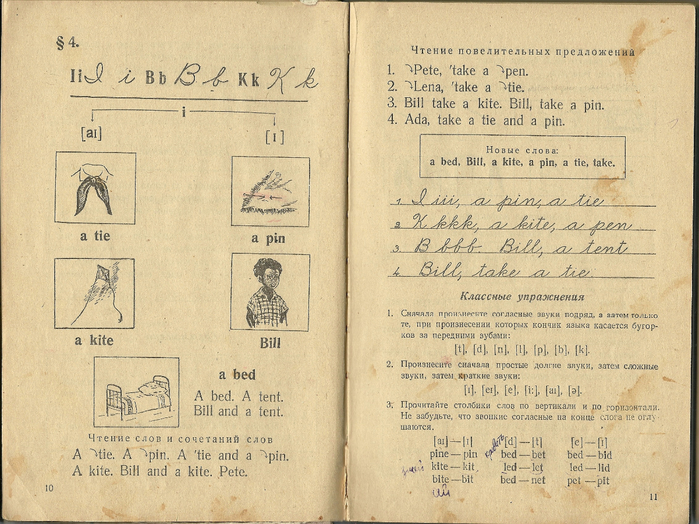 § 4.
Ii I i Bb B b Kk K k
i
[aɪ] [ɪ]
a tie a pin
a kite Bill
a bed
A bed. A tent.
Bill and a tent.
Чтение слов и сочетаний слов
A ⤵tie. A ⤵pin. A 'tie and a ⤵pin.
A kite. Bill and a kite. Pete.
10
Чтение повелительных предложений
1. ⤵Pete, 'take a ⤵pen.
2. ⤵Lena, 'take a ⤵tie.
3. Bill take a kite. Bill, take a pin.
4. Ada, take a tie and a pin.
Новые слова:
a bed, Bill, a kite, a pin, a tie, take.
1. I iii, a pin, a tie
2. K kkk, a kite, a pen
3. B bbb Bill, a tent
4. Bill, take a tie
Классные упражнения
1. Сначала произнесите согласные звуки подряд, а затем только
те, при произнесении которых кончик языка касается бугор-
ков за передними зубами:
[t], [d], [n], [l], [p], [b], [k].
2. Произнесите сначала простые долгие звуки, затем сложные
звуки, затем краткие звуки:
[ɪ], [eɪ], [e], [i:], [aɪ], [ə].
3. Прочитайте столбики слов по вертикали и по горизонтали.
Не забудьте, что звонкие согласные на конце слога не оглу-
шаются.
[aɪ]—[ɪ] [d]—[t] [e]—[ɪ]
pine—pin bed—bet bed—bid
kite—kit led—let led—lid
bite—bit bed—net pet—pit
ай
11